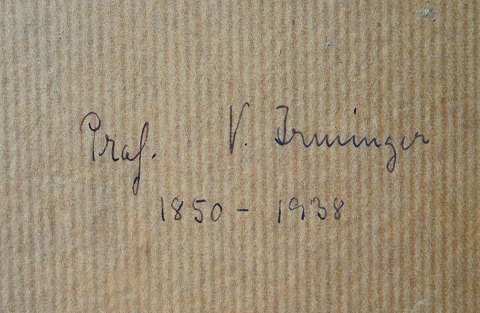 Prof. V. Irminger
1850 - 1938